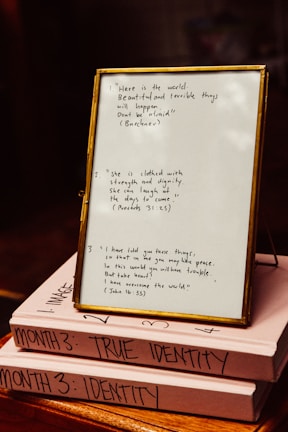 1. "Here is the world.
Beautiful and terrible things
will happen.
Dont be afraid"
(Buechner)
2. "She is clothed with
strength and dignity.
She can laugh at
the days to come."
(Proverbs 31:25)
3. "I have told you these things,
so that in me you may have peace.
In this world you will have trouble.
But take heart!
I have overcome the world."
(John 16:33)
1. IMAGE
2
3
4
MONTH 3: TRUE IDENTITY
MONTH 3: IDENTITY